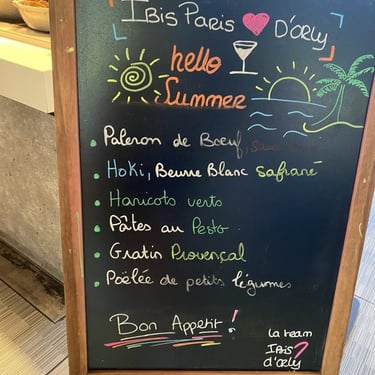 Ibis Paris D'orly
hello
Summer
Paleron de Boeuf,
Hoki, Beurre Blanc safrané
Haricots verts
Pâtes au Pesto
Gratin Provençal
Poëlée de petits légumes
Bon Appetit!
La team
Ibis
d'orly